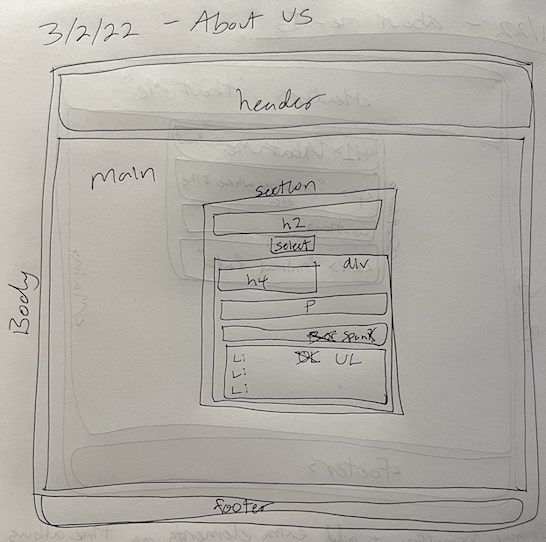 3/2/22 - About US
header
main
section
h2
select
div
h4
P
span
UL
Li
Li
Li
Body
footer